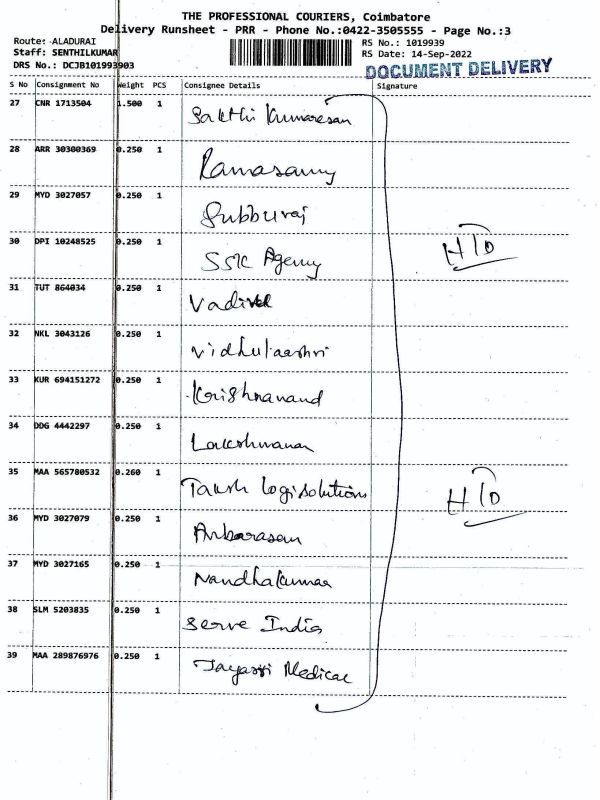 THE PROFESSIONAL COURIERS, Coimbatore
Delivery Runsheet - PRR - Phone No.:0422-3505555 - Page No.:3
Route: ALADURAI
RS No.: 1019939
Staff: SENTHILKUMAR
RS Date: 14-Sep-2022
DRS No.: DCJB101993903
DOCUMENT DELIVERY
S No Consignment No Weight PCS Consignee Details Signature
27 CNR 1713504 1.500 1 Sakthi Kumaresan
28 ARR 30300369 0.250 1 Ramasamy
29 MYD 3027057 0.250 1 Subburaj
30 DPI 10248525 0.250 1 SSK Agency HTD
31 TUT 864034 0.250 1 Vadivel
32 NKL 3043126 0.250 1
33 KUR 694151272 0.250 1 Krishnanand
34 DDG 4442297 0.250 1 Lakshmanan
35 MAA 565780532 0.260 1 Taksh Logisolutions HTD
36 MYD 3027079 0.250 1 Anbarasan
37 MYD 3027165 0.250 1 Nandhakumar
38 SLM 5203835 0.250 1 Serve India
39 MAA 289876976 0.250 1 Jayasri Medical